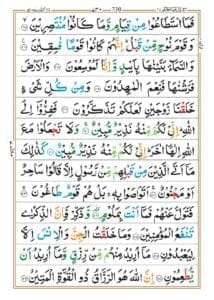 فَمَا اسْتَطَاعُوْا مِنْ قِيَامٍ وَّمَا كَانُوْا مُنْتَصِرِيْنَ
وَقَوْمَ نُوْحٍ مِّنْ قَبْلُ اِنَّهُمْ كَانُوْا قَوْمًا فٰسِقِيْنَ
وَالسَّمَآءَ بَنَيْنٰهَا بِاَيْىدٍ وَّاِنَّا لَمُوْسِعُوْنَ وَالْاَرْضَ
فَرَشْنٰهَا فَنِعْمَ الْمٰهِدُوْنَ وَمِنْ كُلِّ شَيْءٍ
خَلَقْنَا زَوْجَيْنِ لَعَلَّكُمْ تَذَكَّرُوْنَ فَفِرُّوْٓا اِلَى
اللّٰهِ اِنِّيْ لَكُمْ مِّنْهُ نَذِيْرٌ مُّبِيْنٌ وَلَا تَجْعَلُوْا مَعَ
اللّٰهِ اِلٰهًا اٰخَرَ اِنِّيْ لَكُمْ مِّنْهُ نَذِيْرٌ مُّبِيْنٌ كَذٰلِكَ
مَآ اَتَى الَّذِيْنَ مِنْ قَبْلِهِمْ مِّنْ رَّسُوْلٍ اِلَّا قَالُوْا سَاحِرٌ
اَوْ مَجْنُوْنٌ اَتَوَاصَوْا بِهٖ بَلْ هُمْ قَوْمٌ طَاغُوْنَ
فَتَوَلَّ عَنْهُمْ فَمَآ اَنْتَ بِمَلُوْمٍ وَّذَكِّرْ فَاِنَّ الذِّكْرٰى
تَنْفَعُ الْمُؤْمِنِيْنَ وَمَا خَلَقْتُ الْجِنَّ وَالْاِنْسَ اِلَّا
لِيَعْبُدُوْنِ مَآ اُرِيْدُ مِنْهُمْ مِّنْ رِّزْقٍ وَّمَآ اُرِيْدُ اَنْ
يُّطْعِمُوْنِ اِنَّ اللّٰهَ هُوَ الرَّزَّاقُ ذُو الْقُوَّةِ الْمَتِيْنُ